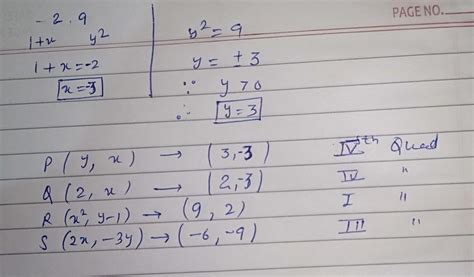 PAGE NO.
-2.9
1+x y²
1+x=-2
x=-3
y²=9
y=±3
∵ y>0
∴ y=3
P(y, x) → (3,-3) IVth Quad
Q(2, x) → (2,-3) IV "
R(x², y-1) → (9, 2) I "
S(2x, -3y) → (-6, -9) III "